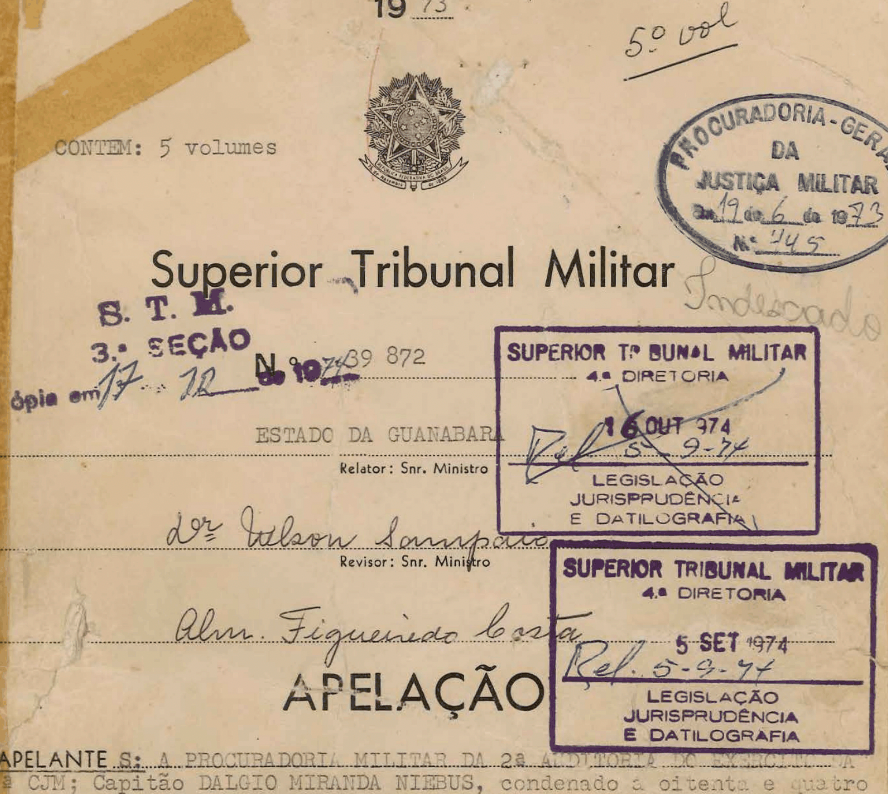 19 73
5º vol
CONTEM: 5 volumes
PROCURADORIA-GERAL
DA
JUSTIÇA MILITAR
Em 19 de 6 de 1973
N.º 445
Superior Tribunal Militar
Indexado
S. T. M.
3.ª SEÇÃO
ópia em 17 12 de 1974
N.º 39 872
SUPERIOR TRIBUNAL MILITAR
4.ª DIRETORIA
16 OUT 974
Rel 5-9-74
LEGISLAÇÃO
JURISPRUDÊNCIA
E DATILOGRAFIA
ESTADO DA GUANABARA
Relator: Snr. Ministro
Dr Nelson Sampaio
Revisor: Snr. Ministro
SUPERIOR TRIBUNAL MILITAR
4.ª DIRETORIA
5 SET 1974
Rel. 5-9-74
LEGISLAÇÃO
JURISPRUDÊNCIA
E DATILOGRAFIA
Alm. Figueiredo Costa
APELAÇÃO
APELANTE S: A PROCURADORIA MILITAR DA 2ª AUDITORIA DO EXERCITO DA
ª CJM; Capitão DALGIO MIRANDA NIEBUS, condenado a oitenta e quatro